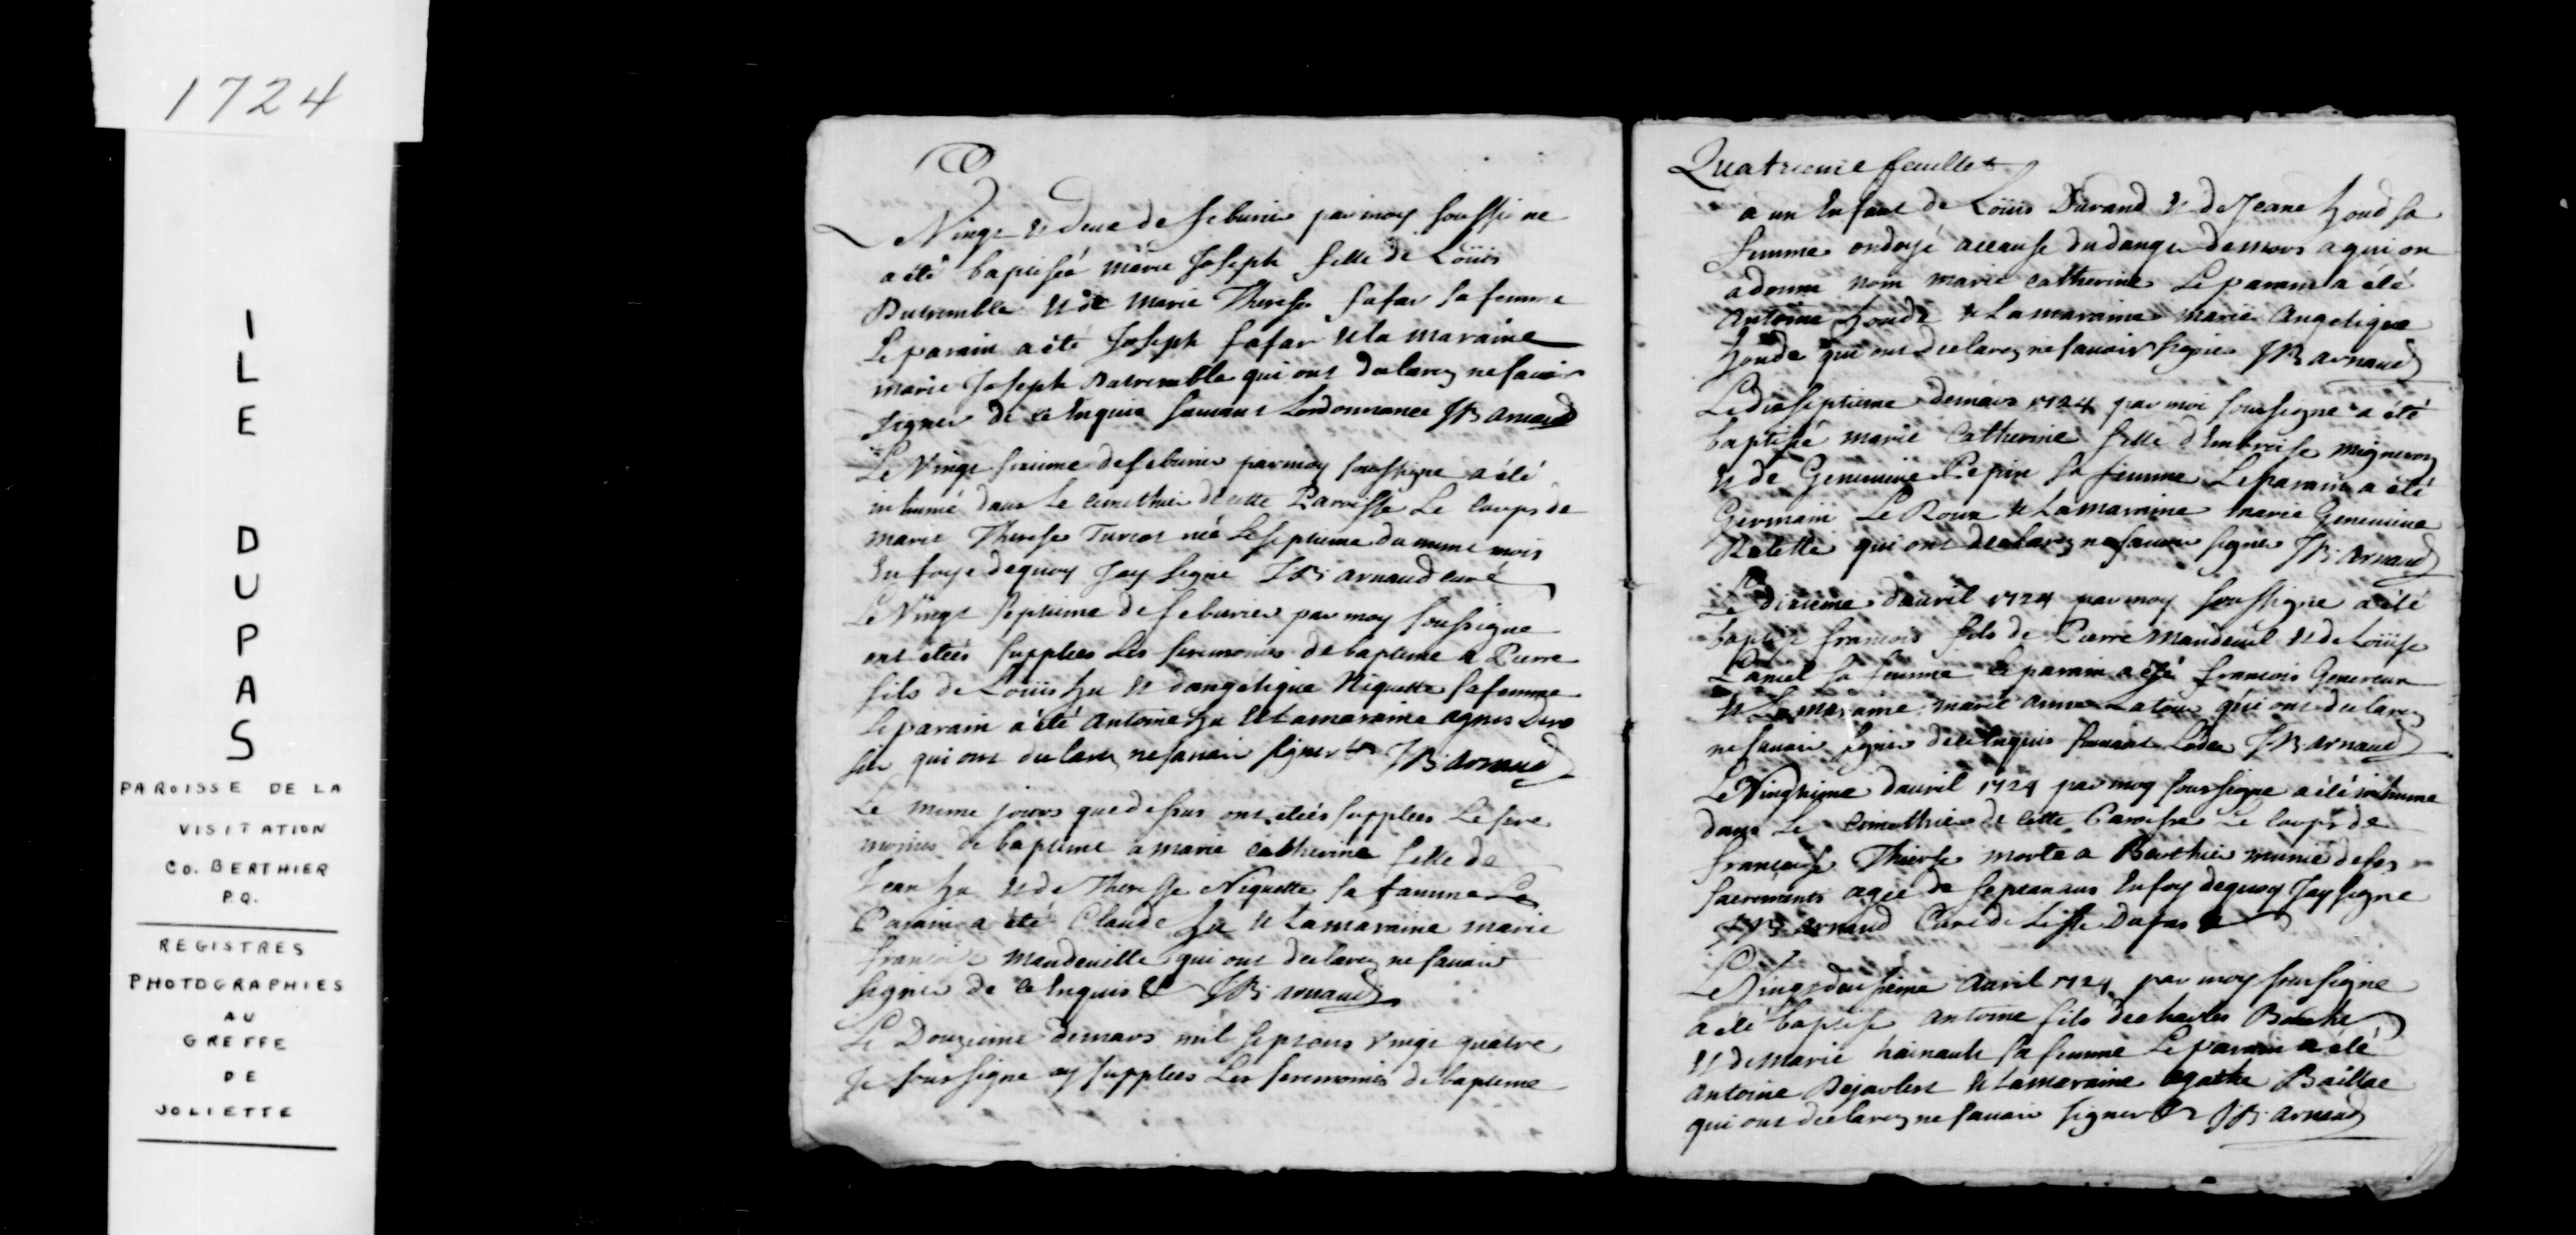 1724
ILE DUPAS
PAROISSE DE LA
VISITATION
CO. BERTHIER
P.Q.
REGISTRES
PHOTOGRAPHIES
AU
GREFFE
DE
JOLIETTE
Le Vingt et deux de feburier par moy soussigne
a été baptiseé marie Joseph fille de Loüis
Dutremble et de marie Therese fafar sa femme
Le parain a été Joseph fafar et la maraine
marie Joseph Dutremble qui ont declarez ne savoir
signer de ce Enquis suivant Lordonnance JB arnaud
Le Vingt sixieme de feburier par moy soussigne a été
inhumé dans le cimethier de cette Paroisse Le corps de
marie Therese Turcot née Le septieme du meme mois
En foy dequoy Jay signé JB. arnaud curé
Le Vingt septieme de feburier par moy soussigne
ont etées supplees Les seremonies de bapteme a Pierre
fils de Loüis hu et dangelique Niquette sa femme
Le parain a été antoine hu et La maraine agnes
qui ont declarez ne savoir signer JB. arnaud
Le meme jours que dessus ont etées supplees Le sere
monies de bapteme a marie catherine fille de
Jean hu et de Theresse Niquette sa famme Le
Parain a été Claude hu et La maraine marie
francoise mandeuille qui ont declarez ne savoir
signer de ce Enquis & JB. arnaud
Le Douzieme demars mil septcens vingt quatre
Je soussigne ay supplees Les seremonies de bapteme
Quatrieme feuillet
a un Enfant de Loüis Durand et de Jeane houd sa
femme ondoyé accause du danger de mors a qui on
a donne nom marie catherine Le parain a été
Antoine houde et La maraine marie Angelique
houde qui ont declarez ne savoir signer JB arnaud
Le dix septieme demars 1724 par moi soussigne a été
baptisé marie Catherine fille d'Embroise migneron
et de Genevieve Pepin sa femme Le parain a été
Germain Le Roux et La maraine marie Genevieve
qui ont declarez ne savoir signer JB. arnaud
Le dixieme dauril 1724 par moy soussigne a été
baptise francois fils de Pierre mandeuil et de Loüise
sa femme Le parain a été francois Genereux
et La maraine marie anne Latour qui ont declarez
ne savoir signer de ce Enquis suivant JB. arnaud
Le Vingtieme dauril 1724 par moy soussigne a été inhume
dans Le cimethier de cette Paroisse Le corps de
francoise Therese morte a Berthier munie de ses
sacrements agee de septantans En foy dequoy Jay signe
JB arnaud Curé de Lisle Dupas
Le Vingtdeusieme Auril 1724 par moy soussigne
a été baptise antoine fils de charles
et de marie hainault sa femme Le parain a été
antoine Dejarlest et La maraine agathe Baillac
qui ont declarez ne savoir signer & JB. arnaud